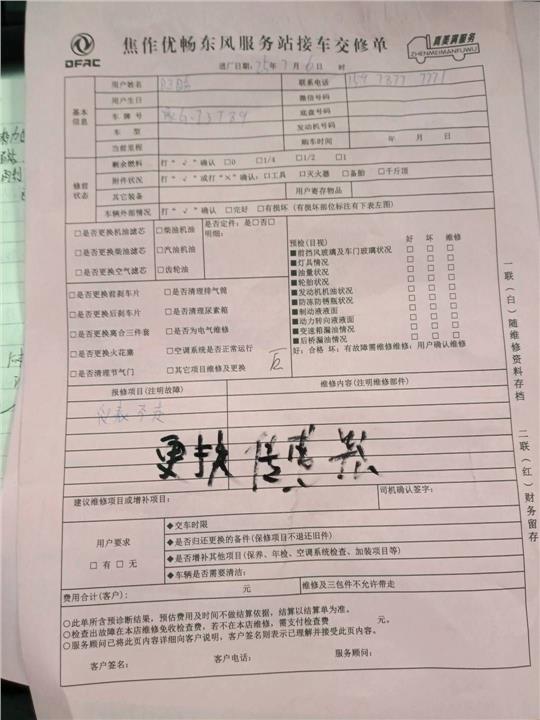 DFAC
焦作优畅东风服务站接车交修单
真美满服务
ZHENMEIMANFUWU
进厂日期: 25年 7月 6日 时
基本信息
用户姓名
联系电话
用户生日
微信号码
车牌号
底盘号码
车型
发动机号码
当前里程
购车时间 年 月 日
修前状态
剩余燃料 打“√”确认 □0 □1/4 □1/2 □1
附件状况 打“√”或打“×”确认:□工具 □灭火器 □备胎 □千斤顶
其它装备
用户寄存物品
车辆外部情况 打“√”确认 □完好 □有损坏(有损坏部位标注有下表左图)
□是否更换机油滤芯 □柴油机油
□是否更换柴油滤芯 □汽油机油
□是否更换空气滤芯 □齿轮油
是否定件:是□否□
明细:
□是否更换前刹车片 □是否清理排气筒
□是否更换后刹车片 □是否清理尿素箱
□是否更换离合三件套 □是否为电气维修
□是否更换火花塞 □空调系统是否正常运行
□是否清理节气门 □其它项目维修及更换
预检(目视) 好 坏 维修
■前挡风玻璃及车门玻璃状况 □ □ □
■灯具情况 □ □ □
■油量状况 □ □ □
■轮胎状况 □ □ □
■发动机机油状况 □ □ □
■防冻防锈瓶状况 □ □ □
■制动液液面 □ □ □
■动力转向液液面 □ □ □
■变速箱漏油情况 □ □ □
■后桥漏油情况 □ □ □
好:合格 坏:有故障需维修维修:用户确认维修
报修项目(注明故障)
维修内容(注明维修部件)
仪表不走
更换 传感器
建议维修项目或增补项目:
司机确认签字:
用户要求
□有 □无
◆交车时限
◆是否归还更换的备件(保修项目不退还旧件)
◆是否增补其他项目(保养、年检、空调系统检查、加装项目等)
◆车辆是否需要清洁:
费用合计(客户): 元
维修及三包件不允许带走
○此单所含预诊断结果,预估费用及时间不做结算依据,结算以结算单为准。
○检查出故障在本店维修免收检查费,若不在本店维修,需支付检查费 元。
○服务顾问已将此页内容详细向客户说明,客户签名则表示已理解并接受此页内容。
客户签名: 客户电话: 服务顾问:
一联(白)随维修资料存档
二联(红)财务留存